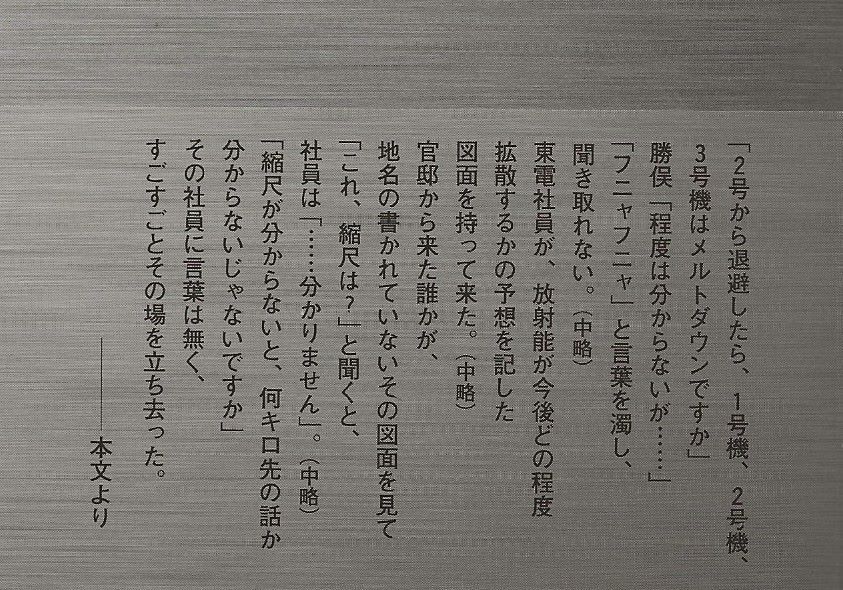 「2号から退避したら、1号機、2号機、
3号機はメルトダウンですか」
勝俣「程度は分からないが……」
「フニャフニャ」と言葉を濁し、
聞き取れない。（中略）
東電社員が、放射能が今後どの程度
拡散するかの予想を記した
図面を持って来た。（中略）
官邸から来た誰かが、
地名の書かれていないその図面を見て
「これ、縮尺は？」と聞くと、
社員は「……分かりません」。（中略）
「縮尺が分からないと、何キロ先の話か
分からないじゃないですか」
その社員に言葉は無く、
すごすごとその場を立ち去った。
――本文より